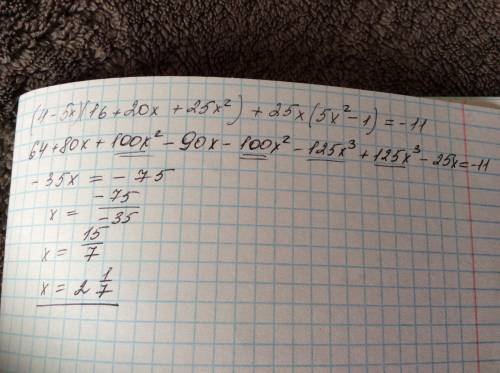 (4-5x)(16+20x+25x²)+25x(5x²-1)=-11
64+80x+100x²-90x-100x²-125x³+125x³-25x=-11
-35x=-75
x=-75/-35
x=15/7
x=2 1/7